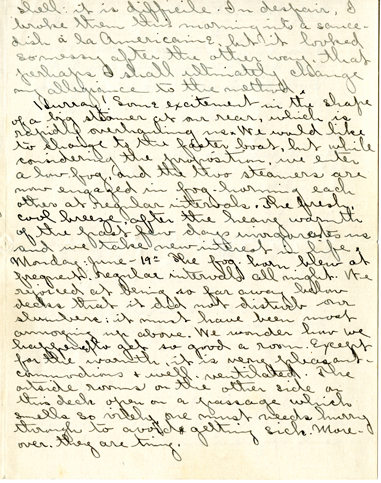 shell: it is difficile. In despair, I
broke them this morning into a sauce-
dish à la Americaine, but it looked
so messy after the other way, that
perhaps I shall ultimately change
my allegiance to the method.
Hurray! Some excitement in the shape
of a big steamer at our rear, which is
rapidly overhauling us. We would like
to change to the faster boat, but while
considering the proposition, we enter
a low fog, and the two steamers are
now engaged in fog-horning each
other at regular intervals. The fresh,
cool breeze after the heavy warmth
of the first few days invigorates us
and we take new interest in life.
Monday-June-19th The fog horn blew at
frequent, regular intervals all night. We
rejoiced at being so far away below
decks that it did not disturb our
slumbers; it must have been most
annoying up above. We wonder how we
happened to get so good a room. Except
for the warmth, it is very pleasant-
commodious & well ventilated. The
outside rooms on the other side on
this deck open on a passage which
smells so vilely one must needs hurry
through to avoid getting sick. More-
over, they are tiny.